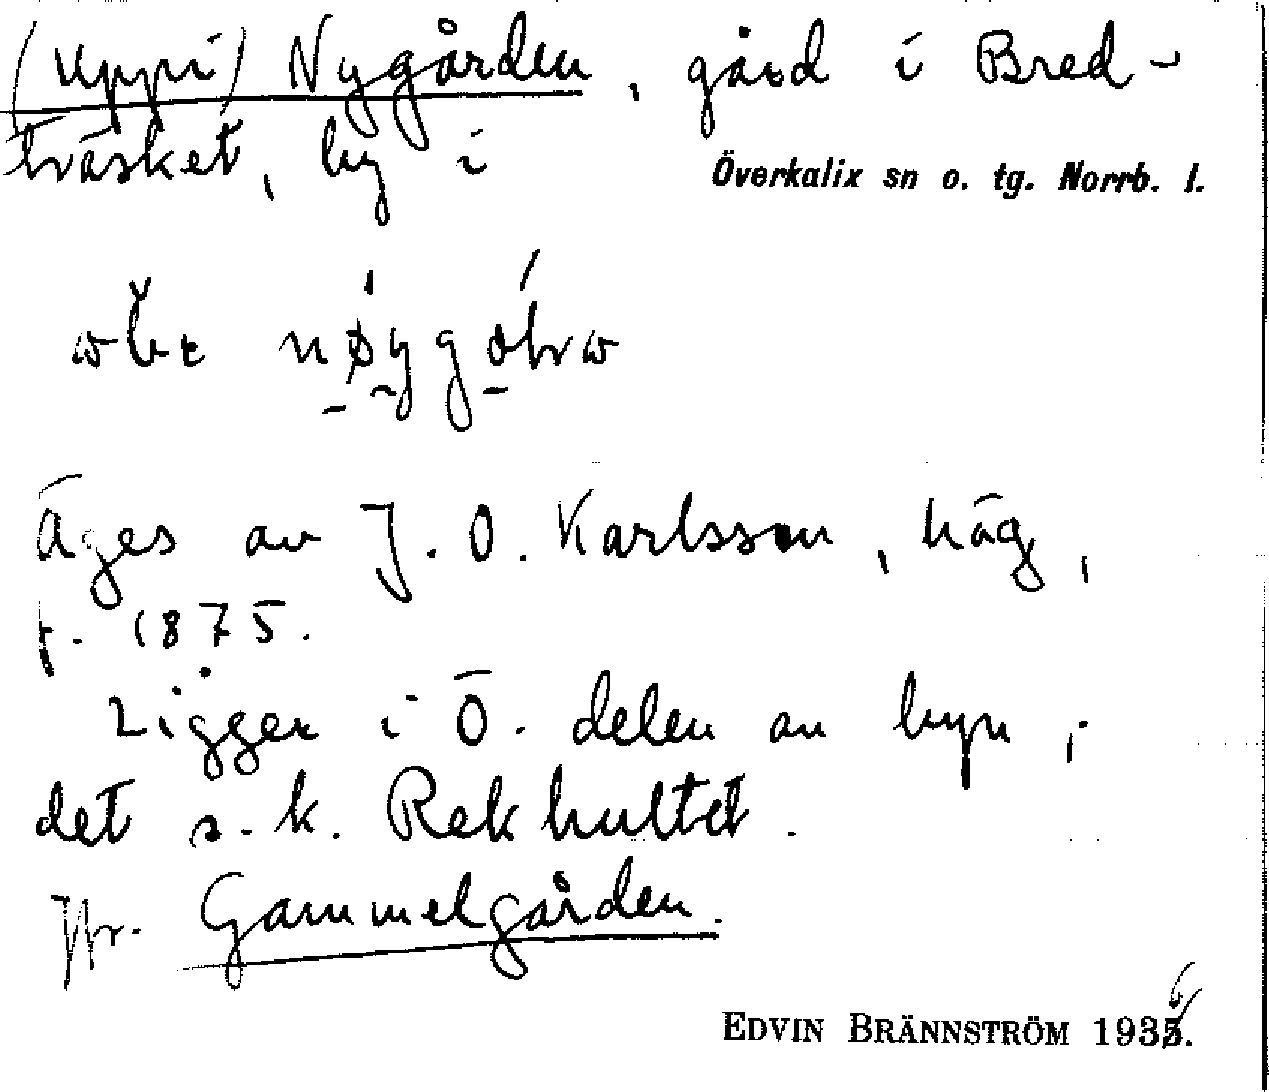 (uppi) Nygården, gård i Bred-
träsket, by i Överkalix sn o. tg. Norrb. l.
Äges av J. O. Karlsson, häg,
f. 1875.
Ligger i Ö. delen av byn,
det s.k. Rekhultet.
Jfr. Gammelgården.
EDVIN BRÄNNSTRÖM 1936.